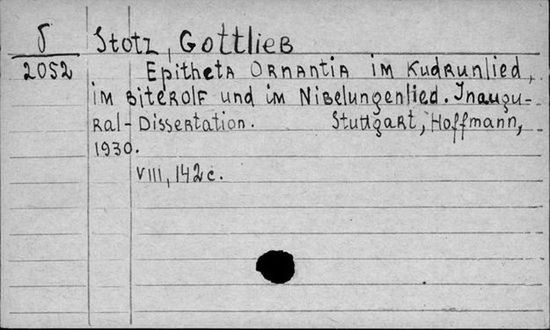 δ
2052
Stotz, Gottlieb
Epitheta Ornantia im Kudrunlied,
im Biterolf und im Nibelungenlied. Inaugu-
ral-Dissertation. Stuttgart, Hoffmann,
1930.
VIII, 142 c.